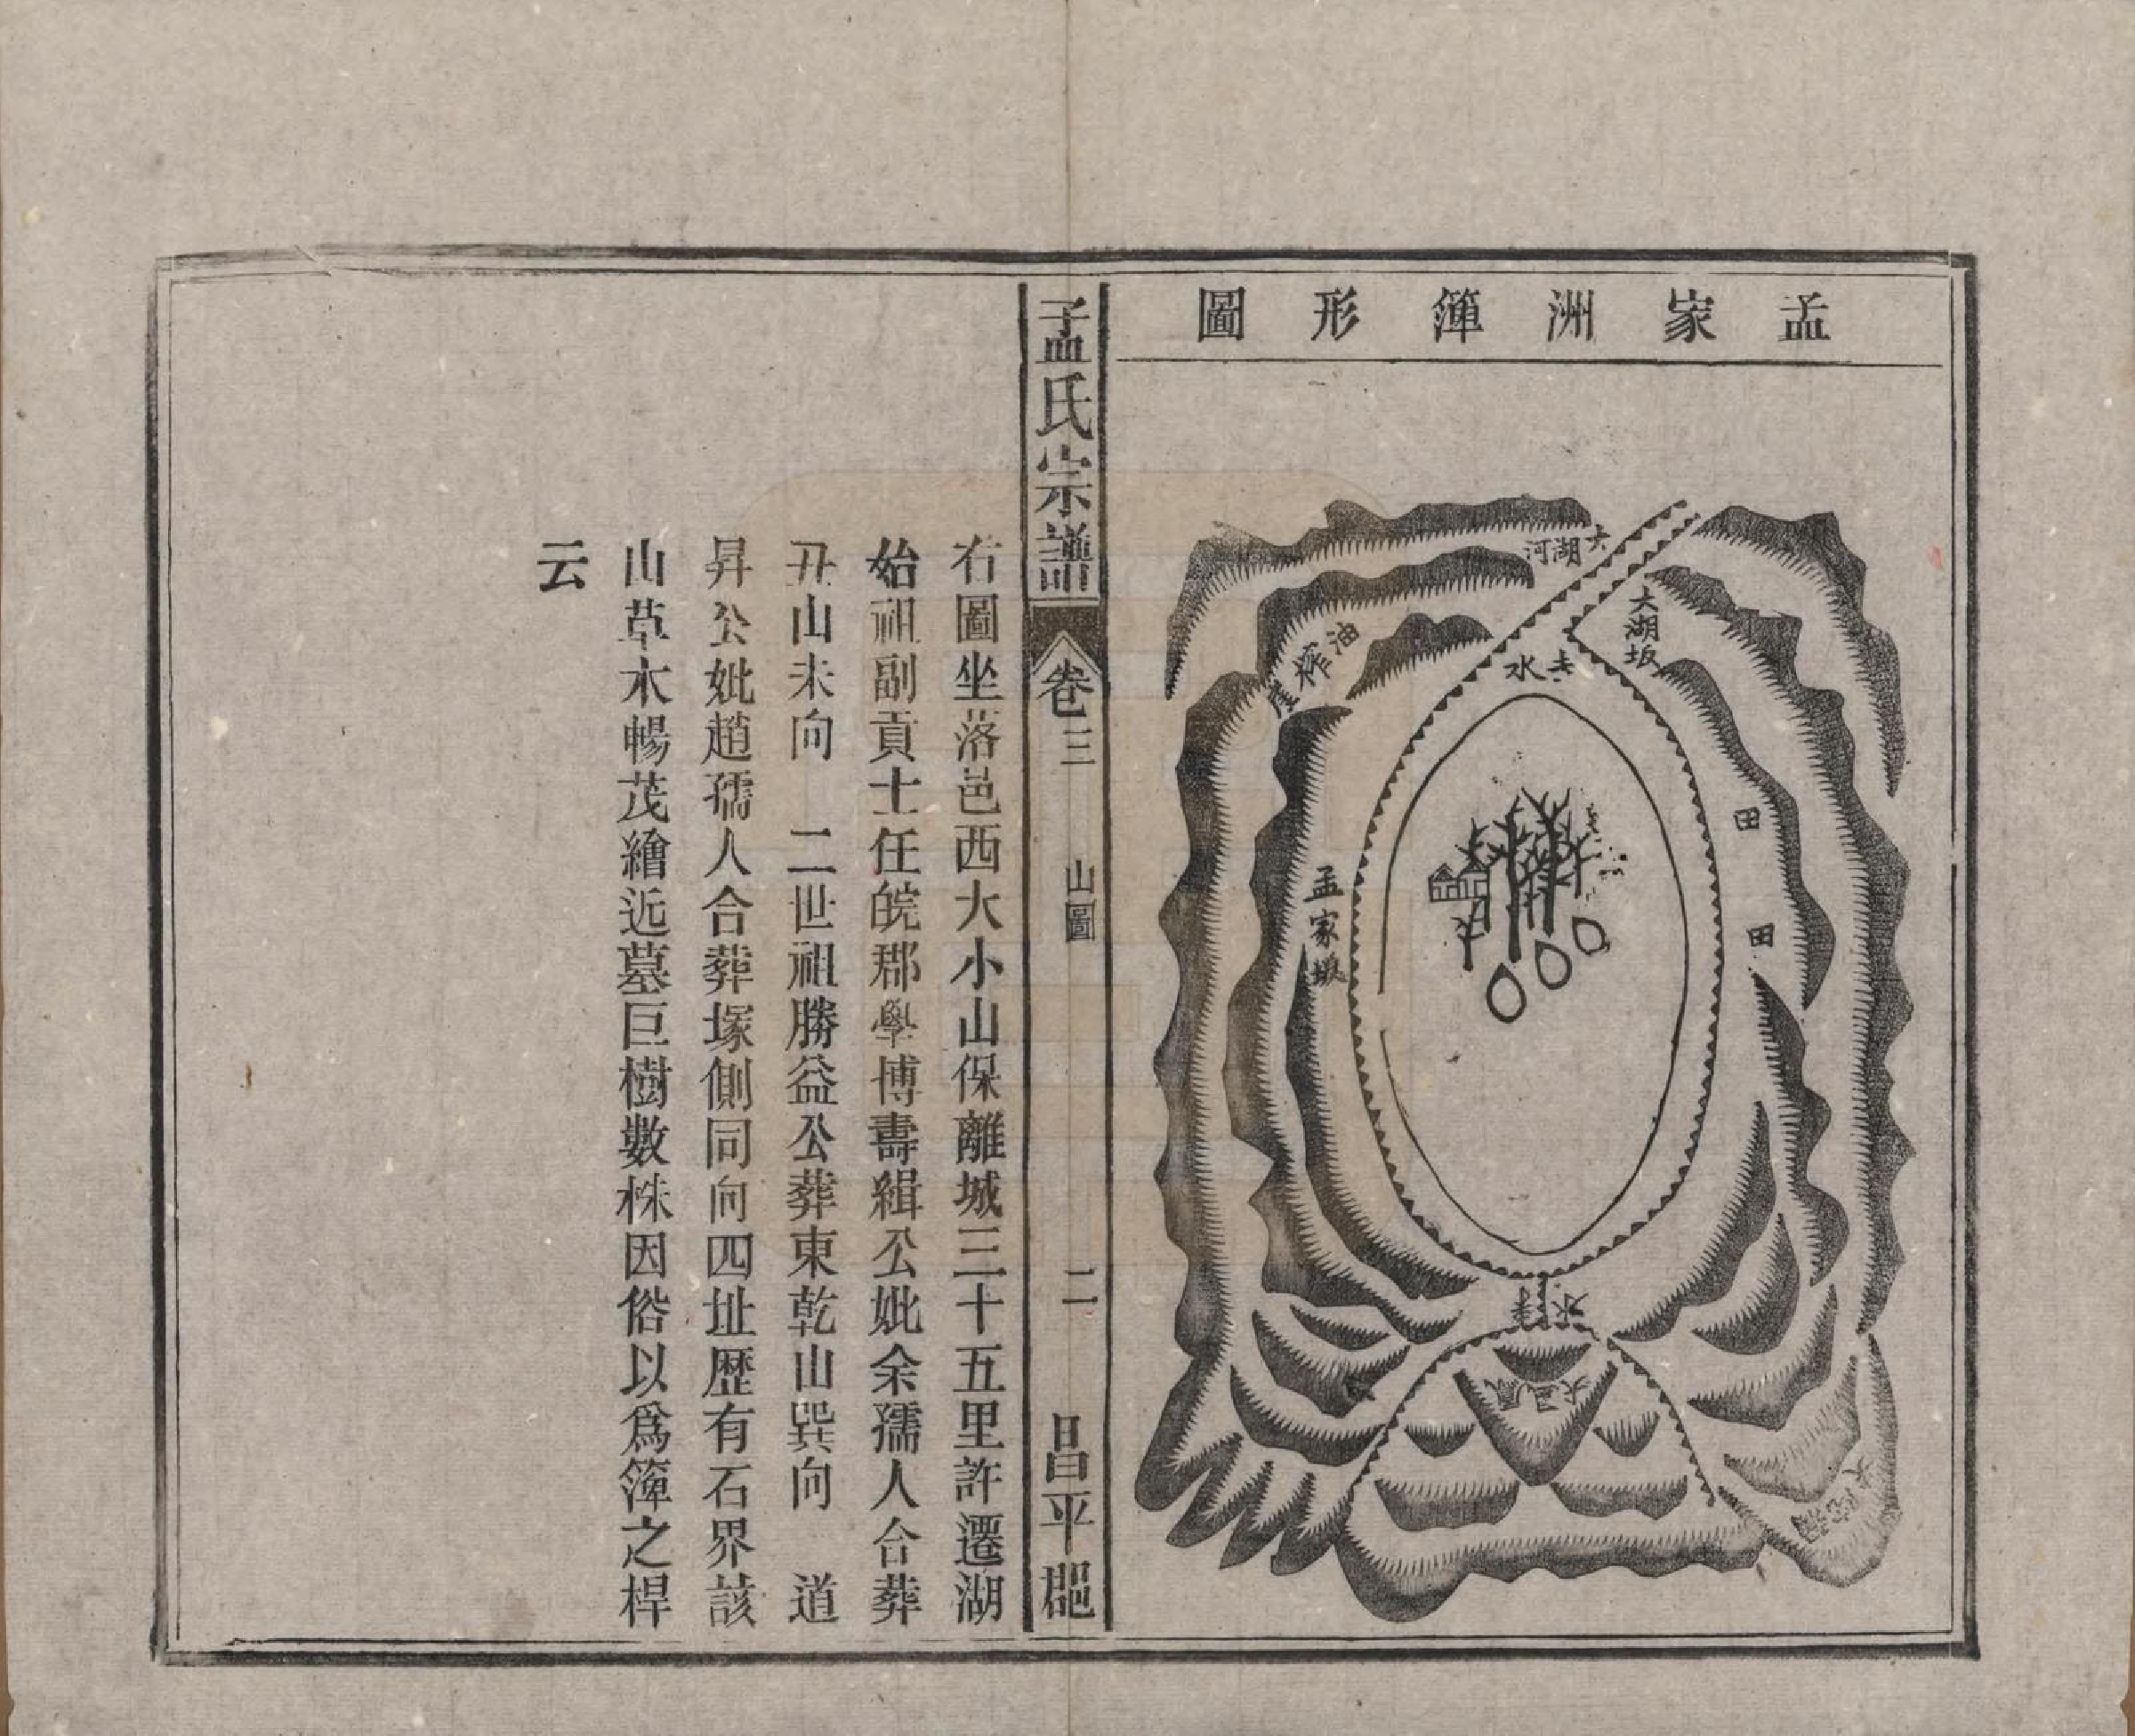 孟家洲簰形圖
大湖河
大湖坂
油榨
去水
田
田
孟家
水
孟氏宗譜
卷三
山圖
二
昌平郡
右圖坐落邑西大小山保離城三十五里許遷湖
始祖副貢士任皖郡學博壽緝公妣余孺人合葬
丑山未向　二世祖勝益公葬東乾山巽向　道
昇公妣趙孺人合葬塚側同向四址歷有石界該
山草木暢茂繪近墓巨樹數株因俗以爲簰之桿
云